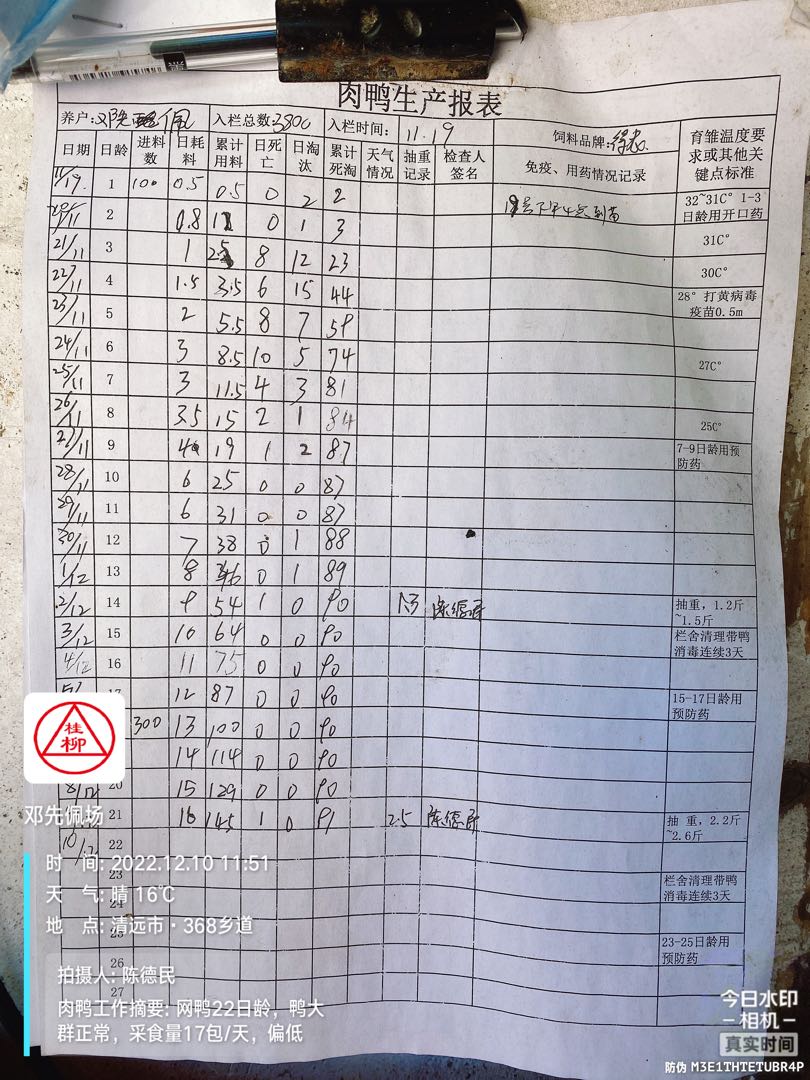 肉鸭生产报表
养户: 邓先佩 入栏总数:3800 入栏时间: 11.19 饲料品牌: 育雏温度要求或其他关键点标准
日期 日龄 进料数 日耗料 累计用料 日死亡 日淘汰 累计死淘 天气情况 抽重记录 检查人签名 免疫、用药情况记录
11/19 1 100 0.5 0.5 0 2 2 32~31C° 1-3日龄用开口药
20/11 2 0.8 0 1 3 31C°
21/11 3 1 2.5 8 12 23 30C°
22/11 4 1.5 3.5 6 15 44 28° 打黄病毒疫苗0.5m
23/11 5 2 5.5 8 7 59
24/11 6 3 8.5 10 5 74 27C°
25/11 7 3 11.5 4 3 81
26/11 8 3.5 15 2 1 84 25C°
27/11 9 4 19 1 2 87 7-9日龄用预防药
28/11 10 6 25 0 0 87
29/11 11 6 31 0 0 87
30/11 12 7 38 0 1 88
1/12 13 8 46 0 1 89
2/12 14 9 54 1 0 90 1.3 陈德民 抽重，1.2斤~1.5斤
3/12 15 10 64 0 0 90 栏舍清理带鸭消毒连续3天
4/12 16 11 75 0 0 90
17 12 87 0 0 90 15-17日龄用预防药
300 13 100 0 0 90
14 114 0 0 90
8/12 20 15 129 0 0 90
21 16 145 1 0 91 2.5 陈德民 抽 重，2.2斤~2.6斤
10/12 22
23 栏舍清理带鸭消毒连续3天
24
25 23-25日龄用预防药
26
27
桂柳
邓先佩场
时 间: 2022.12.10 11:51
天 气: 晴 16℃
地 点: 清远市·368乡道
拍摄人: 陈德民
肉鸭工作摘要: 网鸭22日龄，鸭大
群正常，采食量17包/天，偏低
今日水印
相机
真实时间
防伪 M3E1THTETUBR4P